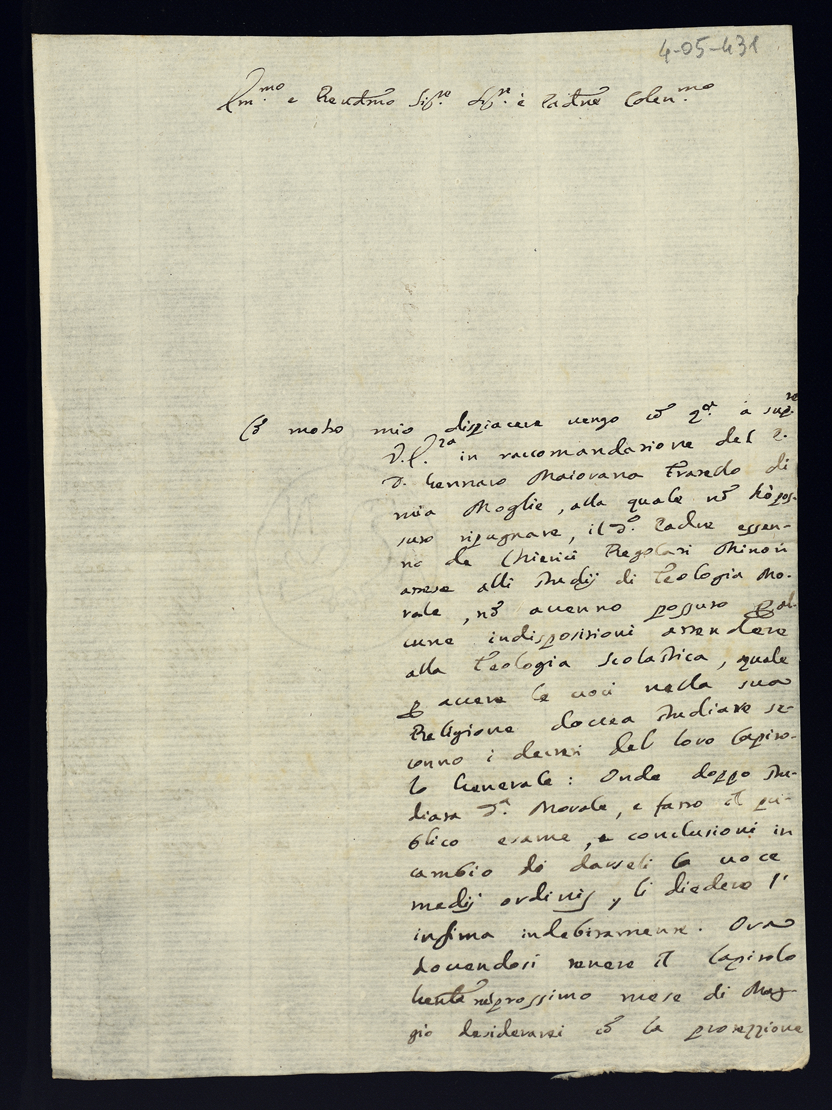 4-05-431
Em.mo e Reudmo Sig.re Sig.re e Padne Colen.mo
Cõ molto mio dispiacere vengo cõ q.ta à sup.re
V.E.za in raccomandazione del P.
D. Gennaro Maiorana fratello di
mia Moglie, alla quale nõ hò pos-
suto ripugnare, il dº. Padre essen-
no de Chierici Regolari Minori
attese alli studij di teologia Mo-
rale, nõ avenno possuto p al-
cune indisposizioni attendere
alla teologia scolastica, quale
p avere le voci nella sua
Religione dovea studiare se-
conno i decreti del loro Capito-
lo Generale: Onde doppo stu-
diata dª. Morale, e fatto il pu-
blico esame, e conclusioni in
cambio di darseli la voce
medij ordinis, li diedero l'
infima indebitamente. Ora
dovendosi tenere il Capitolo
Genle nel prossimo mese di Mag-
gio desiderarei cõ la protezzione